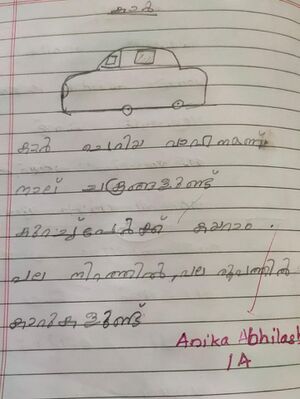 കാർ
കാർ ചെറിയ വാഹനമാണ്
നാല് ചക്രങ്ങളുണ്ട്
കുറച്ച് പേർക്ക് കയറാം .
പല നിറത്തിൽ, പല രൂപത്തിൽ
കാറുകളുണ്ട്
Anika Abhilash
1A